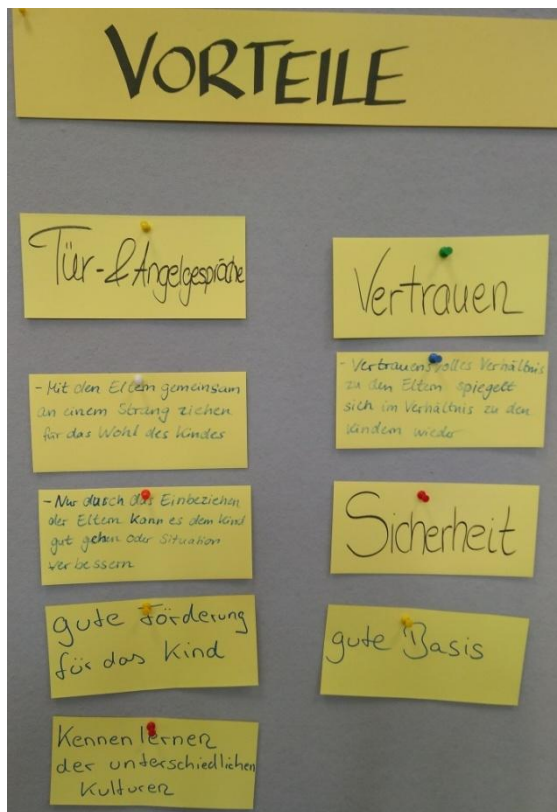 VORTEILE
Tür- & Angelgespräche
- Mit den Eltern gemeinsam
an einem Strang ziehen
für das Wohl des Kindes
- Nur durch das Einbeziehen
der Eltern kann es dem Kind
gut gehen oder Situation
verbessern
gute Förderung
für das Kind
Kennenlernen
der unterschiedlichen
Kulturen
Vertrauen
- Vertrauensvolles Verhältnis
zu den Eltern spiegelt
sich im Verhältnis zu den
Kindern wieder
Sicherheit
gute Basis